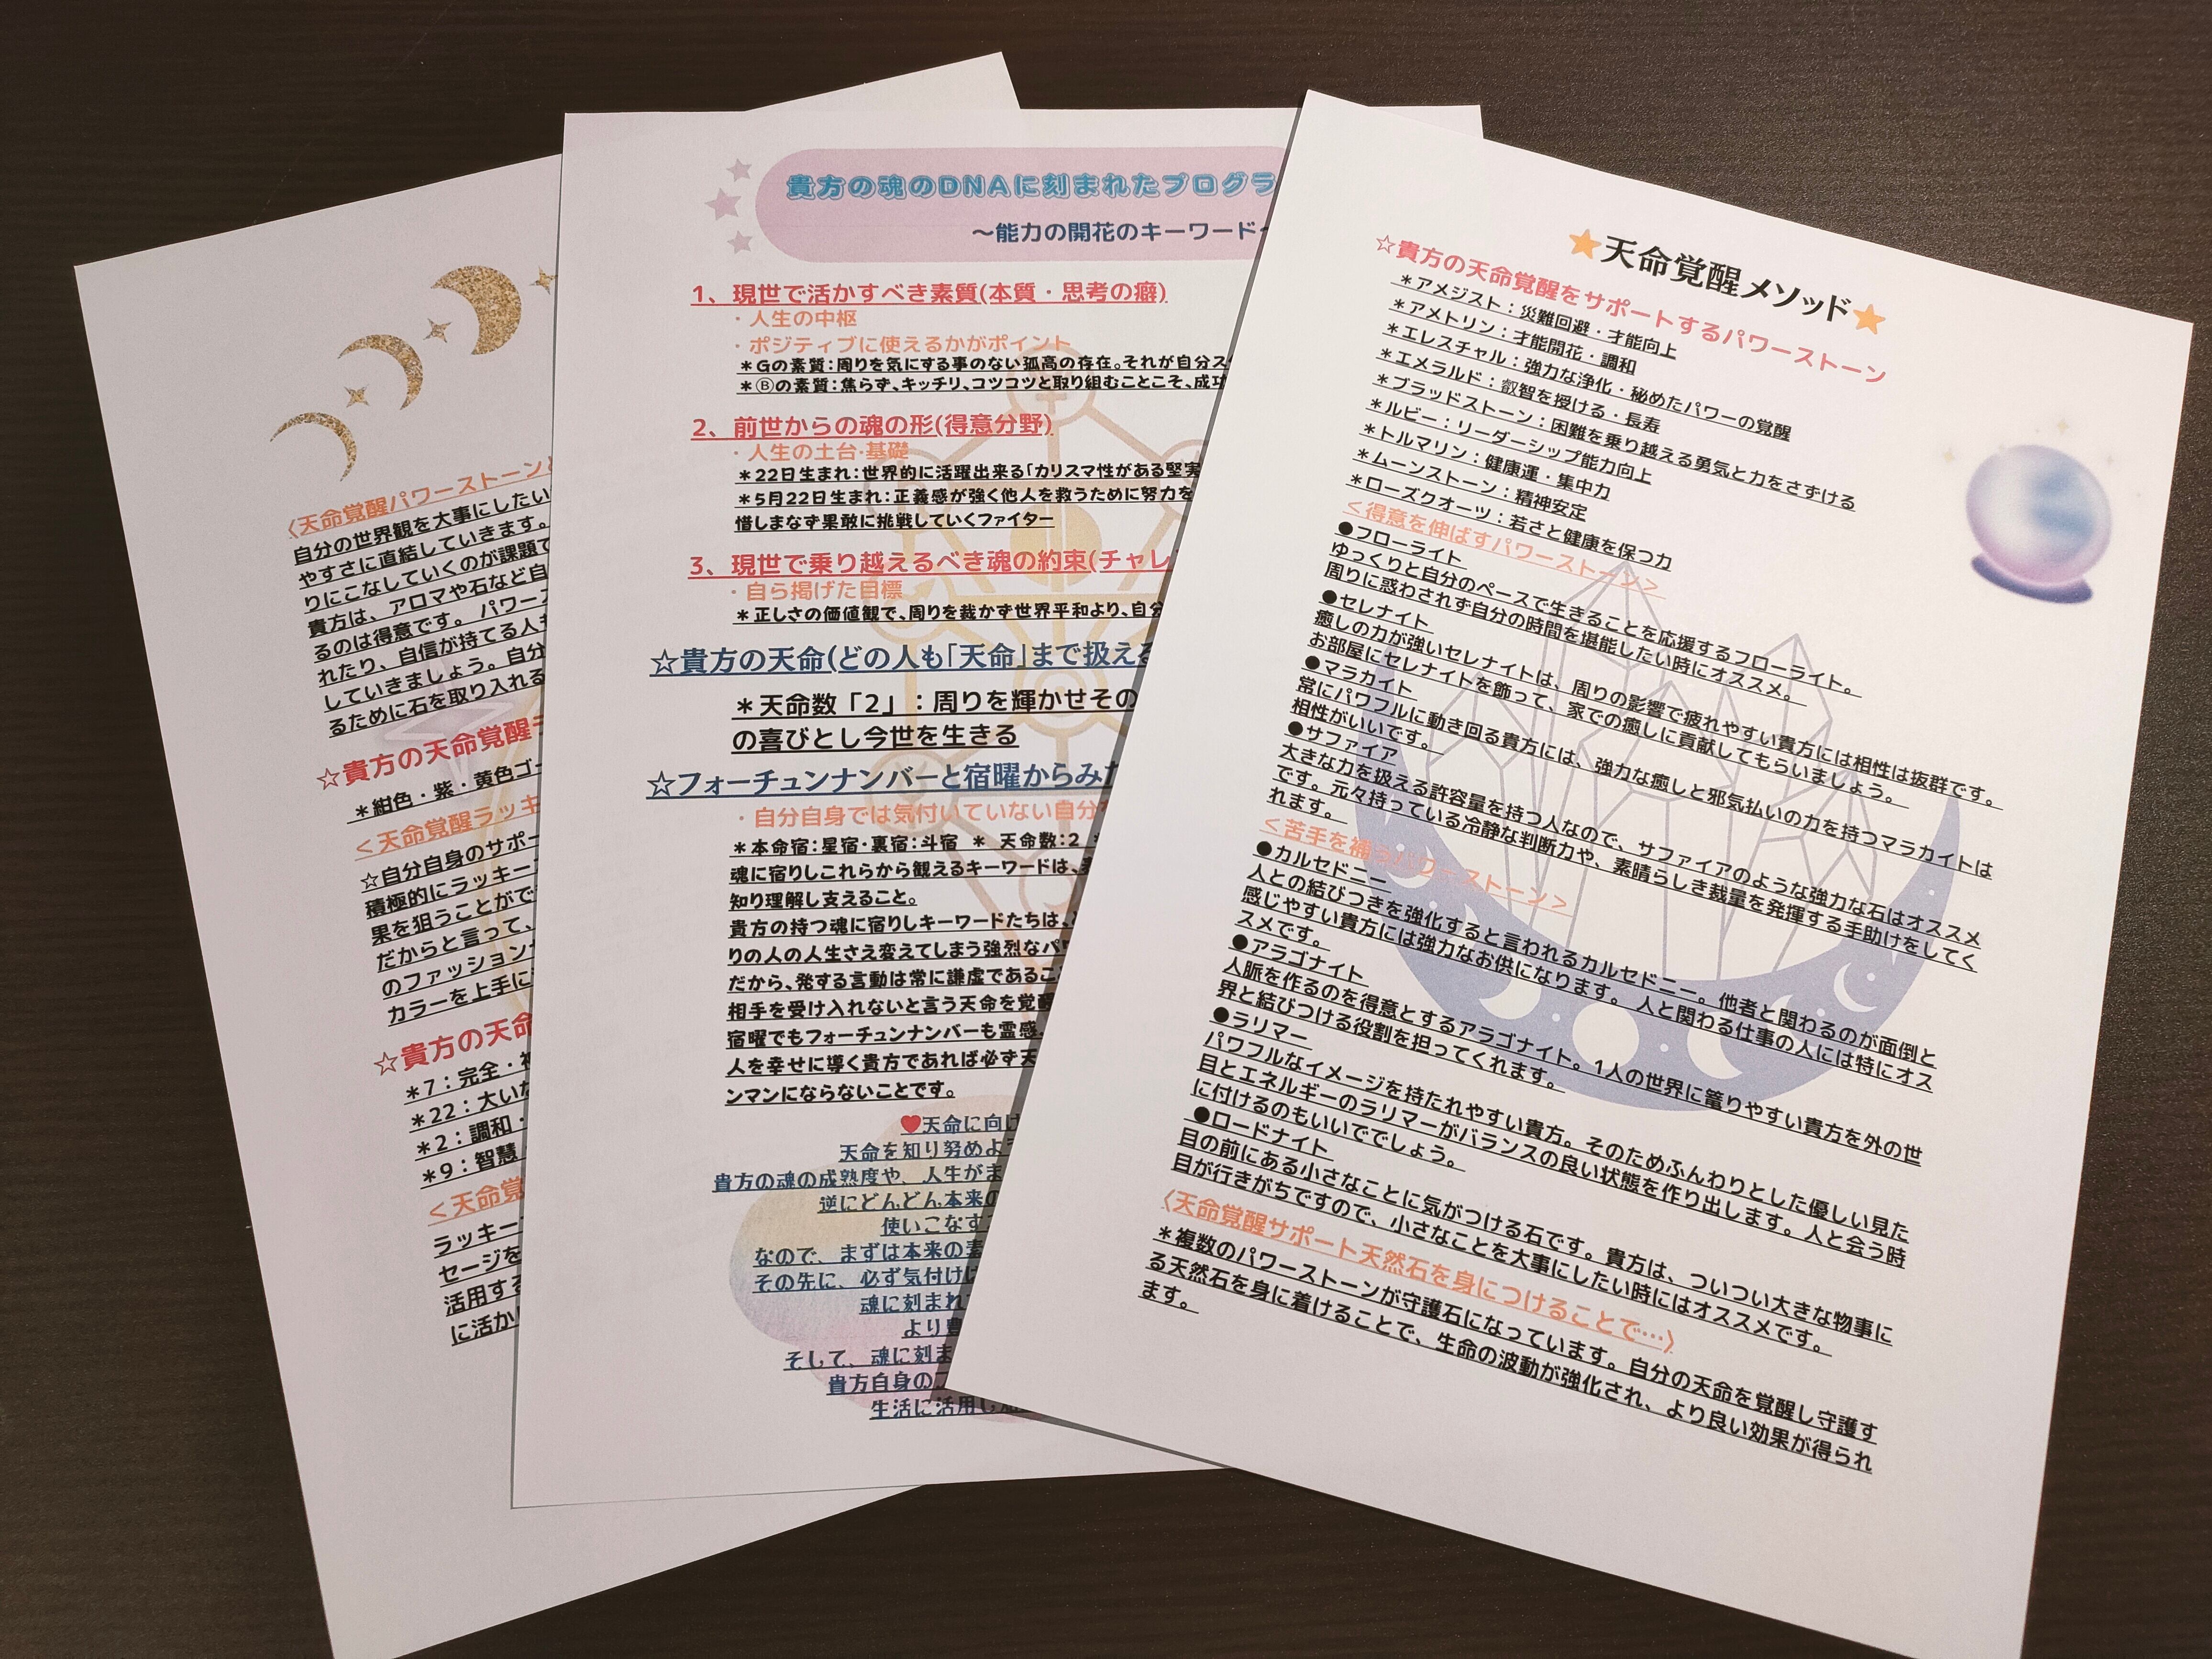 〈天命覚醒パワーストーンと
自分の世界観を大事にしたい
やすさに直結していきます。
りにこなしていくのが課題で
貴方は、アロマや石など自
るのは得意です。パワース
れたり、自信が持てる人も
していきましょう。自分
るために石を取り入れる
☆貴方の天命覚醒ラ
＊紺色・紫・黄色ゴー
＜天命覚醒ラッキ
☆自分自身のサポー
積極的にラッキー
果を狙うことがで
だからと言って、
のファッション
カラーを上手に
☆貴方の天命
＊7：完全・神
＊22：大いな
＊2：調和・
＊9：智慧
＜天命覚
ラッキー
セージを
活用す
に活か
貴方の魂のDNAに刻まれたプログラ
～能力の開花のキーワード～
1、現世で活かすべき素質(本質・思考の癖)
・人生の中枢
・ポジティブに使えるかがポイント
＊Gの素質：周りを気にする事のない孤高の存在。それが自分ス
＊Ⓑの素質：焦らず、キッチリ、コツコツと取り組むことこそ、成功
2、前世からの魂の形(得意分野)
・人生の土台・基礎
＊22日生まれ：世界的に活躍出来る「カリスマ性がある堅実
＊5月22日生まれ：正義感が強く他人を救うために努力を
惜しまなず果敢に挑戦していくファイター
3、現世で乗り越えるべき魂の約束(チャレ
・自ら掲げた目標
＊正しさの価値観で、周りを裁かず世界平和より、自分
☆貴方の天命(どの人も「天命」まで扱える
＊天命数「2」：周りを輝かせその
の喜びとし今世を生きる
☆フォーチュンナンバーと宿曜からみた
・自分自身では気付いていない自分
＊本命宿：星宿・裏宿：斗宿 ＊ 天命数：2 ＊
魂に宿りしこれらから観えるキーワードは、
知り理解し支えること。
貴方の持つ魂に宿りしキーワードたちは、
りの人の人生さえ変えてしまう強烈なパワ
だから、発する言動は常に謙虚であるこ
相手を受け入れないと言う天命を覚醒
宿曜でもフォーチュンナンバーも霊感、
人を幸せに導く貴方であれば必ず天
ンマンにならないことです。
❤天命に向け
天命を知り努めよ
貴方の魂の成熟度や、人生がま
逆にどんどん本来の
使いこなす
なので、まずは本来の素
その先に、必ず気付け
魂に刻まれ
より豊
そして、魂に刻ま
貴方自身の
生活に活用し
★天命覚醒メソッド★
☆貴方の天命覚醒をサポートするパワーストーン
＊アメジスト：災難回避・才能向上
＊アメトリン：才能開花・調和
＊エレスチャル：強力な浄化・秘めたパワーの覚醒
＊エメラルド：叡智を授ける・長寿
＊ブラッドストーン：困難を乗り越える勇気と力をさずける
＊ルビー：リーダーシップ能力向上
＊トルマリン：健康運・集中力
＊ムーンストーン：精神安定
＊ローズクオーツ：若さと健康を保つ力
＜得意を伸ばすパワーストーン＞
●フローライト
ゆっくりと自分のペースで生きることを応援するフローライト。
周りに惑わされず自分の時間を堪能したい時にオススメ。
●セレナイト
癒しの力が強いセレナイトは、周りの影響で疲れやすい貴方には相性は抜群です。
お部屋にセレナイトを飾って、家での癒しに貢献してもらいましょう。
●マラカイト
常にパワフルに動き回る貴方には、強力な癒しと邪気払いの力を持つマラカイトは
相性がいいです。
●サファイア
大きな力を扱える許容量を持つ人なので、サファイアのような強力な石はオススメ
です。元々持っている冷静な判断力や、素晴らしき裁量を発揮する手助けをしてく
れます。
＜苦手を補うパワーストーン＞
●カルセドニー
人との結びつきを強化すると言われるカルセドニー。他者と関わるのが面倒と
感じやすい貴方には強力なお供になります。人と関わる仕事の人には特にオス
スメです。
●アラゴナイト
人脈を作るのを得意とするアラゴナイト。1人の世界に篭りやすい貴方を外の世
界と結びつける役割を担ってくれます。
●ラリマー
パワフルなイメージを持たれやすい貴方。そのためふんわりとした優しい見た
目とエネルギーのラリマーがバランスの良い状態を作り出します。人と会う時
に付けるのもいいででしょう。
●ロードナイト
目の前にある小さなことに気がつける石です。貴方は、ついつい大きな物事に
目が行きがちですので、小さなことを大事にしたい時にはオススメです。
〈天命覚醒サポート天然石を身につけることで…〉
＊複数のパワーストーンが守護石になっています。自分の天命を覚醒し守護す
る天然石を身に着けることで、生命の波動が強化され、より良い効果が得られ
ます。